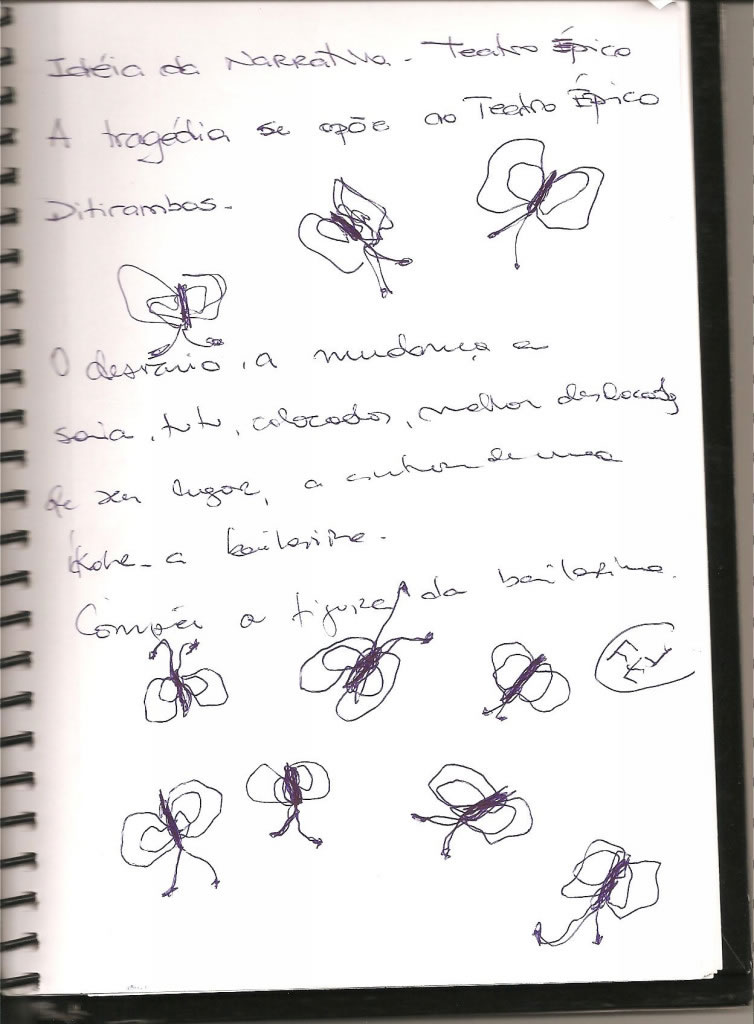 Idéia da Narrativa - Teatro Épico
A tragédia se opõe ao Teatro Épico
Ditirambos -
O desvario, a mudança a
saia, tutu, colocados, melhor deslocados
de seu lugar, a
a bailarina.
Compõe a figura da bailarina.